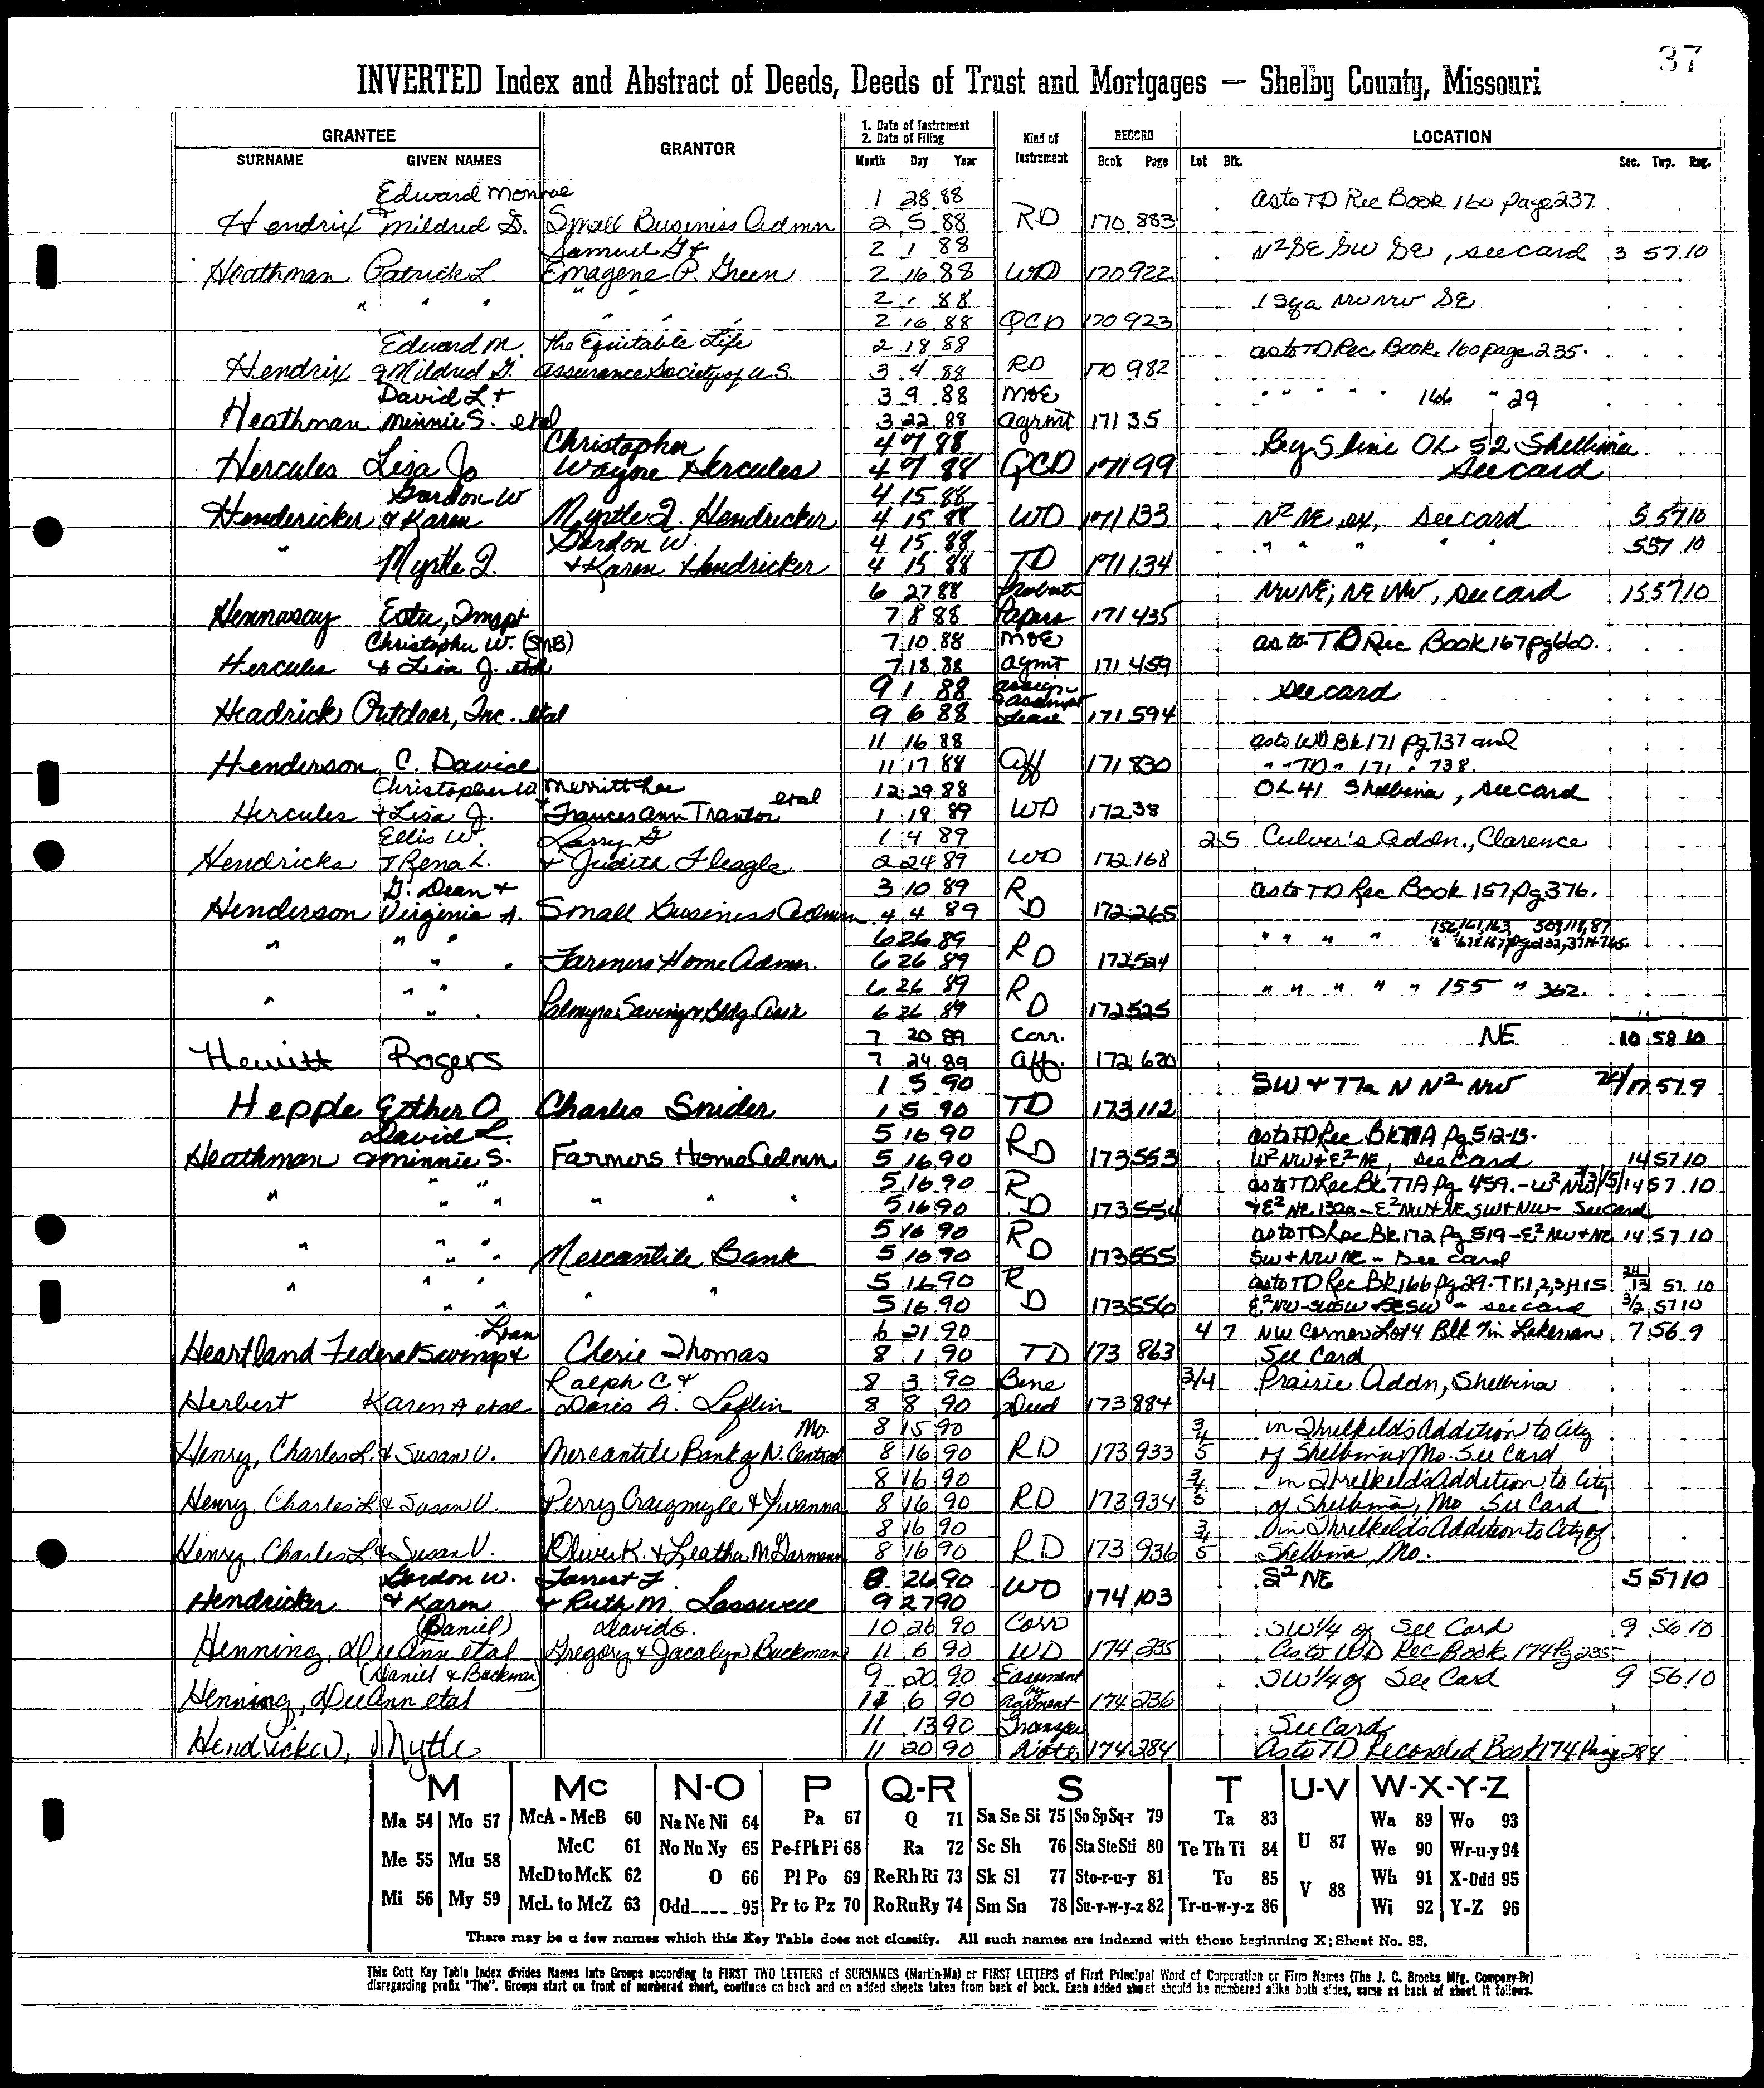 37
INVERTED Index and Abstract of Deeds, Deeds of Trust and Mortgages — Shelby County, Missouri
GRANTEE GRANTOR 1. Date of Instrument 2. Date of Filing Kind of Instrument RECORD LOCATION
SURNAME GIVEN NAMES Month Day Year Book Page Lot Blk. Sec. Twp. Rng.
Edward Monroe 1 28 88 as to TD Rec Book 160 page 237.
Hendrix & Mildred G. Small Business Admn 2 5 88 RD 170 883
Samuel G & 2 1 88 N2 SE SW SE, see card 3 57 10
Heathman Patrick L. Emagene P. Green 2 16 88 WD 170 922
" " " " " 2 1 88 13 9a NW NW SE
" " " 2 16 88 QCD 170 923
Edward M. The Equitable Life 2 18 88 as to TD Rec Book 160 page 235.
Hendrix & Mildred G. Assurance Society of U.S. 3 4 88 RD 170 982
David L. & 3 9 88 MOE " " " " " 166 " 29
Heathman Minnie S. etal 3 22 88 Agrmt 171 35
Christopher 4 7 88 Beg S line OL 52 Shelbina
Hercules Lisa Jo Wayne Hercules 4 7 88 QCD 171 99 See card
Gordon W 4 15 88
Hendericker & Karen Myrtle I. Hendricker 4 15 88 WD 171 133 N2 NE, ex, see card 5 57 10
" Gordon W. 4 15 88 " " " " " 5 57 10
Myrtle I. & Karen Hendricker 4 15 88 TD 171 134
6 27 88 Probate NW NE; NE NW, see card 15 57 10
Hennasay Este, 7 8 88 Papers 171 435
Christopher W. (SMB) 7 10 88 MOE as to TD Rec Book 167 pg 660.
Hercules & Lisa J. etal 7 18 88 agmt 171 459
9 1 88 assign see card
Headrick Outdoor, Inc. etal 9 6 88 Lease 171 594
11 16 88 as to WD Bk 171 pg 737 and
Henderson C. David 11 17 88 Aff 171 830 " " TD " 171 " 738.
Christopher W Merritt Lee 12 29 88 OL 41 Shelbina, see card
Hercules & Lisa J. & Frances Ann Trantor etal 1 19 89 WD 172 38
Ellis W. Larry G 1 4 89 2 5 Culver's Addn., Clarence
Hendricks & Rena L. & Judith Fleagle 2 24 89 WD 172 168
G. Dean & 3 10 89 R as to TD Rec Book 157 pg 376.
Henderson Virginia A. Small Business Admn 4 4 89 D 172 265
" " " 6 26 89 R " " " " 156, 161, 163, 509, 118, 87
" Farmers Home Admn. 6 26 89 D 172 524
" " " 6 26 89 R " " " " " 155 " 362.
" Palmyra Saving & Bldg. Assn 6 26 89 D 172 525
7 20 89 Corr. NE 10 58 10
Hewitt Rogers 7 24 89 aff. 172 620
1 5 90 SW & 77a N N2 NW 17 57 9
Hepple Esther O. Charles Snider 1 5 90 TD 173 112
David L. 5 16 90 as to TD Rec Bk 171A Pg 512-13.
Heathman & Minnie S. Farmers Home Admn 5 16 90 RD 173 553 W2 NW & E2 NE, see card 14 57 10
" " " 5 16 90 R as to TD Rec Bk 171A Pg. 459. - W2 NW 14 57 10
" " " 5 16 90 D 173 554 & E2 NE 132a - E2 NW & NE SW & NW - see card
" " " 5 16 90 R as to TD Rec Bk 172 Pg 519 - E2 NW & NE 14 57 10
" Mercantile Bank 5 16 90 D 173 555 SW & NW NE - See card
" " " " 5 16 90 R as to TD Rec Bk 166 Pg 29. Tr. 1, 2, 3, 4 & 15 24/13 57 10
" " " 5 16 90 D 173 556 E2 NW - SW SW & SE SW - see card 3/2 57 10
Loan 6 21 90 4 7 NW Corner Lot 4 Blk 7 in Lakenan 7 56 9
Heartland Federal Savings & Cherie Thomas 8 1 90 TD 173 863 See Card
Ralph C. & 8 3 90 Bene 3/4 Prairie Addn, Shelbina
Herbert Karen A etal Doris A. Laflin 8 8 90 Deed 173 884
Mo. 8 15 90 3/4 in Threlkeld's Addition to City
Henry, Charles L. & Susan V. Mercantile Bank of N. Central 8 16 90 RD 173 933 5 of Shelbina, Mo. See Card
8 16 90 3/4 in Threlkeld's Addition to City
Henry, Charles L & Susan V. Perry Craigmyle & Yuvanna 8 16 90 RD 173 934 5 of Shelbina, Mo See Card
8 16 90 3/4 in Threlkeld's Addition to City of
Henry, Charles L & Susan V. Oliver K. & Leatha M Garmann 8 16 90 RD 173 936 5 Shelbina, Mo.
Gordon W. Forrest F. 8 26 90 S2 NE 5 57 10
Hendricker & Karen & Ruth M. Lasswell 9 27 90 WD 174 103
(Daniel) David G. 10 26 90 Corr SW 1/4 of See Card 9 56 10
Henning, DeeAnn etal Gregory & Jacalyn Buckman 11 6 90 WD 174 235 As to WD Rec Book 174 Pg 235
(Daniel & Buckman) 9 20 90 Easement by SW 1/4 of See Card 9 56 10
Henning, DeeAnn etal 11 6 90 Agrment 174 236
11 13 90 Transfer See Card
Hendricker, Myrtle 11 20 90 Note 174 284 As to TD Recorded Book 174 Page 284
M Mc N-O P Q-R S T U-V W-X-Y-Z
Ma 54 Mo 57 McA - McB 60 Na Ne Ni 64 Pa 67 Q 71 Sa Se Si 75 So Sp Sq-r 79 Ta 83 U 87 Wa 89 Wo 93
Me 55 Mu 58 McC 61 No Nu Ny 65 Pe-f Ph Pi 68 Ra 72 Sc Sh 76 Sta Ste Sti 80 Te Th Ti 84 We 90 Wr-u-y 94
McD to McK 62 O 66 Pl Po 69 Re Rh Ri 73 Sk Sl 77 Sto-r-u-y 81 To 85 V 88 Wh 91 X-Odd 95
Mi 56 My 59 McL to McZ 63 Odd_____95 Pr to Pz 70 Ro Ru Ry 74 Sm Sn 78 Su-v-w-y-z 82 Tr-u-w-y-z 86 Wi 92 Y-Z 96
There may be a few names which this Key Table does not classify. All such names are indexed with those beginning X; Sheet No. 95.
This Cott Key Table Index divides Names Into Groups according to FIRST TWO LETTERS of SURNAMES (Martin-Ma) or FIRST LETTERS of First Principal Word of Corporation or Firm Names (The J. C. Brocks Mfg. Company-Br)
disregarding prefix "The". Groups start on front of numbered sheet, continue on back and on added sheets taken from back of book. Each added sheet should be numbered alike both sides, same as back of sheet it follows.